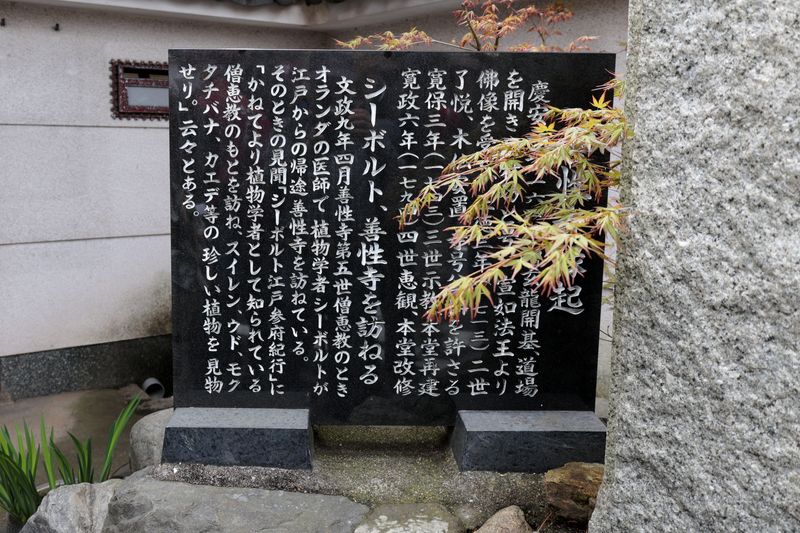 性 起
慶安 龍開基、道場
を開き 宣如法王より
佛像を受 年 二世
了悦、木 置 号 を許さる
寛保三年(一七四三)三世示教、本堂再建
寛政六年(一七九四)四世恵観、本堂改修
シーボルト、善性寺を訪ねる
文政九年四月善性寺第五世僧恵教のとき
オランダの医師で 植物学者シーボルトが
江戸からの帰途 善性寺を訪ねている。
そのときの見聞「シーボルト江戸参府紀行」に
「かねてより植物学者として知られている
僧恵教のもとを訪ね、スイレン、ウド、モク
タチバナ、カエデ等の珍しい植物を見物
せり」云々とある。